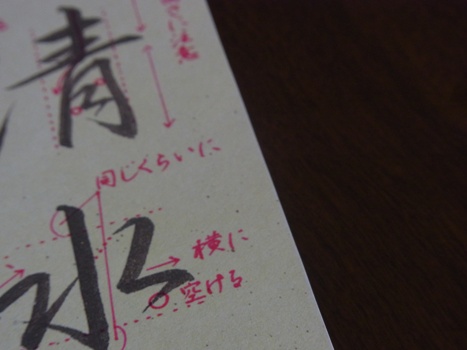 清
同じくらいに
水
横に
空ける